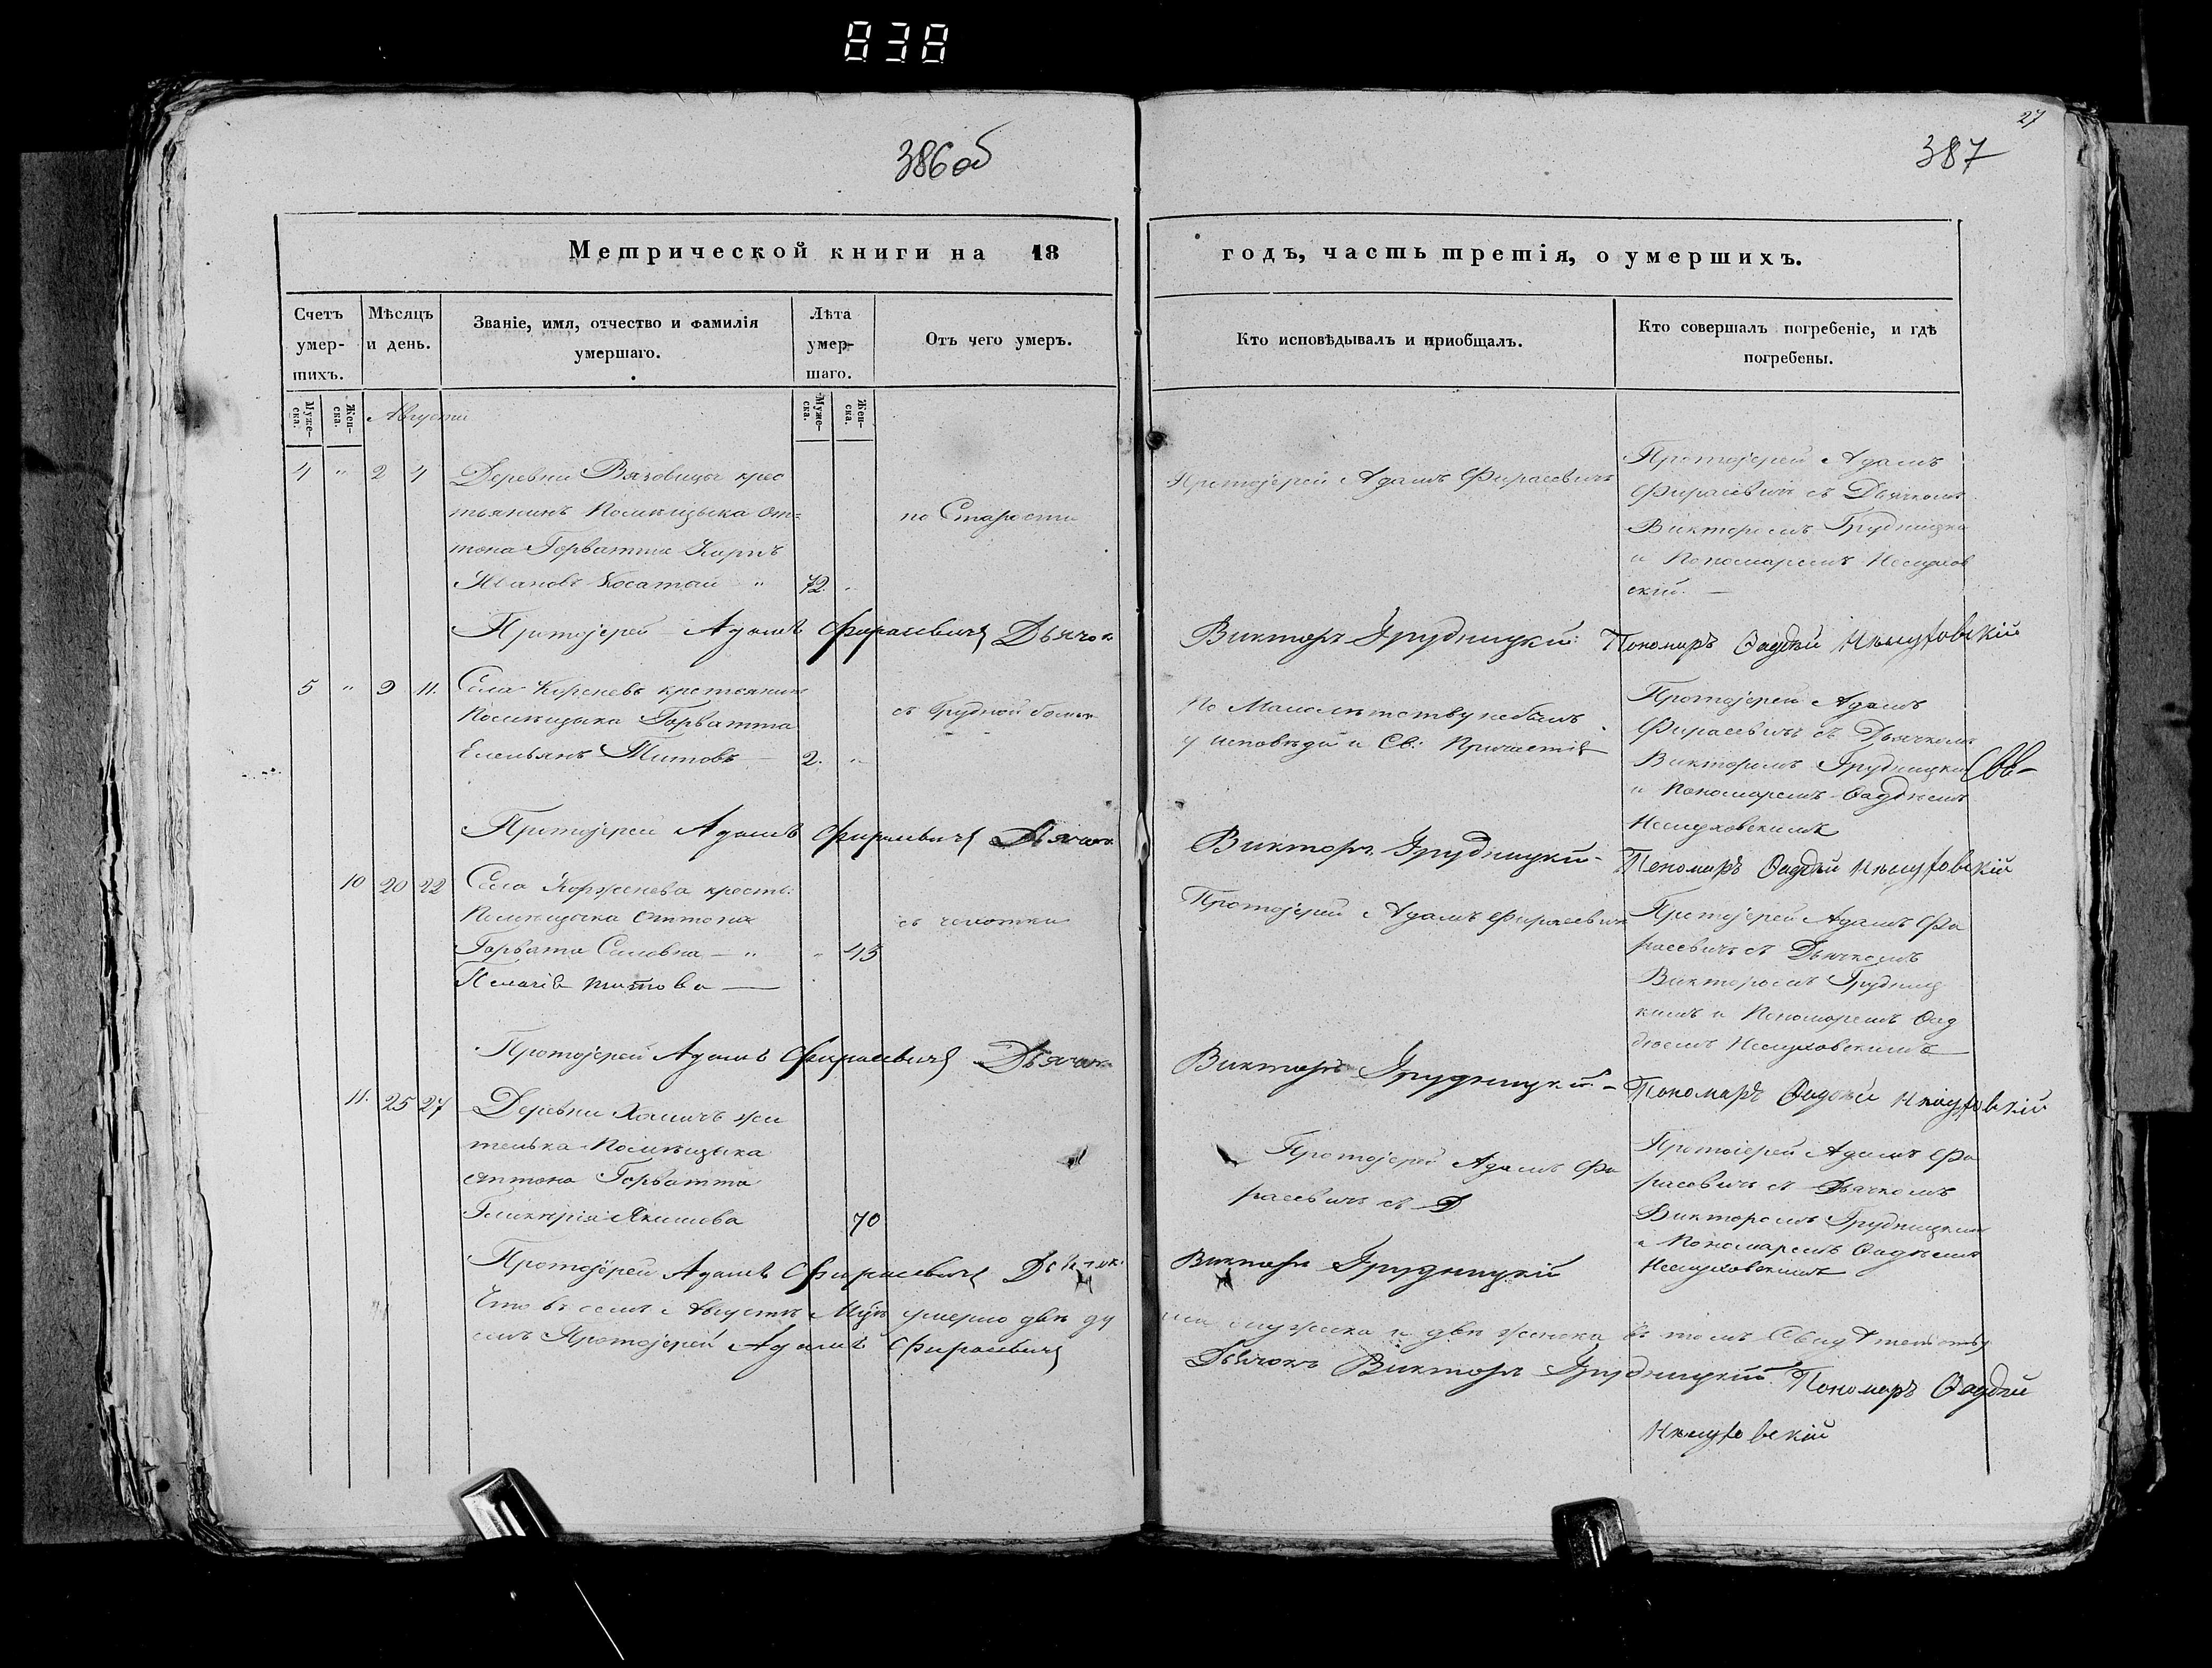 838
386об
27
387
Метрической книги на 18
годъ, часть третія, о умершихъ.
Счетъ умер-шихъ.
Мѣсяцъ и день.
Званіе, имя, отчество и фамилія
умершаго.
Лѣта умер-шаго.
Отъ чего умеръ.
Кто исповѣдывалъ и приобщалъ.
Кто совершалъ погребеніе, и гдѣ
погребены.
Муже-ска.
Жен-ска.
Муже-ска.
Жен-ска.
Августъ
4 " 2 4 Деревни Вязовицы крес
тьянинъ Помѣщыка Ан=
тона Горватта Карпъ
Ивановъ Косатой " 72. "
по Старости
Протоіерей Адамъ Фирасевичъ
Протоіерей Адамъ
Фирасевичъ съ Дьячкомъ
Викторомъ Грудницки
и Пономаремъ Несцухов
скій. —
Протоіерей Адамъ Фирасевичъ Дьячок
Викторъ Грудницкій: Пономаръ Фадѣй
5 " 9 11. Села Кореневъ крестьянинъ
Помѣщыка Горватта
Емельянъ Титовъ — 2. "
съ Грудной болѣзни
По Малолѣтству небылъ
у исповѣди и Св: Причастія
Протоіерей Адамъ
Фирасевичъ съ Дьячкомъ
Викторомъ Грудницки
и Пономаремъ Фадѣемъ
Протоіерей Адамъ Фирасевичъ Дьячок
Викторъ Грудницкій-
Пономаръ Фадѣй
10 20 22 Села Корженева крестъ:
Помѣщыка Антона
Горвата Саловка — " " 45
Пелагія Титова —
съ чахотки
Протоіерей Адамъ Фирасевичъ
Протоіерей Адамъ Фи
расевичъ съ Дьячкомъ
Викторомъ Грудниц
кимъ и Пономаремъ Фад
дѣемъ
Протоіерей Адамъ Фирасевичъ Дьячок
Викторъ Грудницкій-
Пономаръ Фадѣй
11. 25 27 Деревни Хомичъ жи
телька Помѣщыка
Антона Горватта
Гликерія Якимова 70
Протоіерей Адамъ Фи
расевичъ съ Д
Протоіерей Адамъ Фи
расевичъ съ Дьячкомъ
Викторомъ Грудницким
и Пономаремъ Фадѣемъ
Протоіерей Адамъ Фирасевичъ Дьячок
Викторъ Грудницкій
Что въ семъ Августѣ Мцѣ умерло двѣ ду
ши мужеска и двѣ женска въ томъ Свидѣтельству
емъ Протоіерей Адамъ Фирасевичъ
Дьячокъ Викторъ Грудницкій. Пономаръ Фадѣй